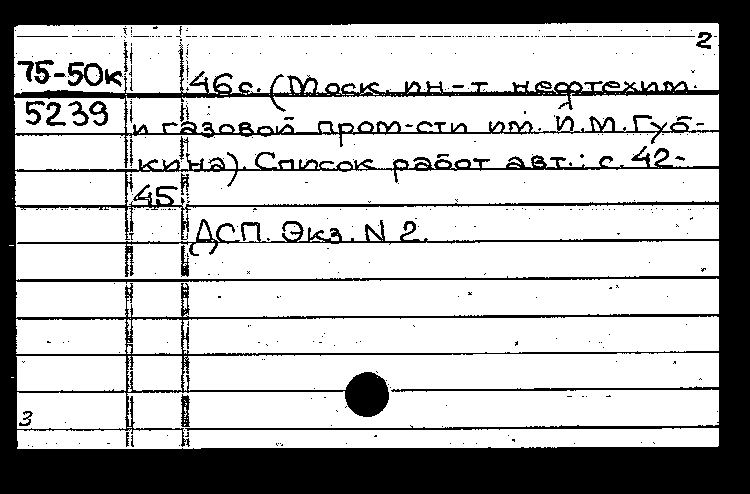 2
75-50к 46 с. (Моск. ин-т нефтехим.
5239 и газовой пром-сти им. И.М.Губ-
кина). Список работ авт.: с. 42-
45
ДСП. Экз. N 2.
3